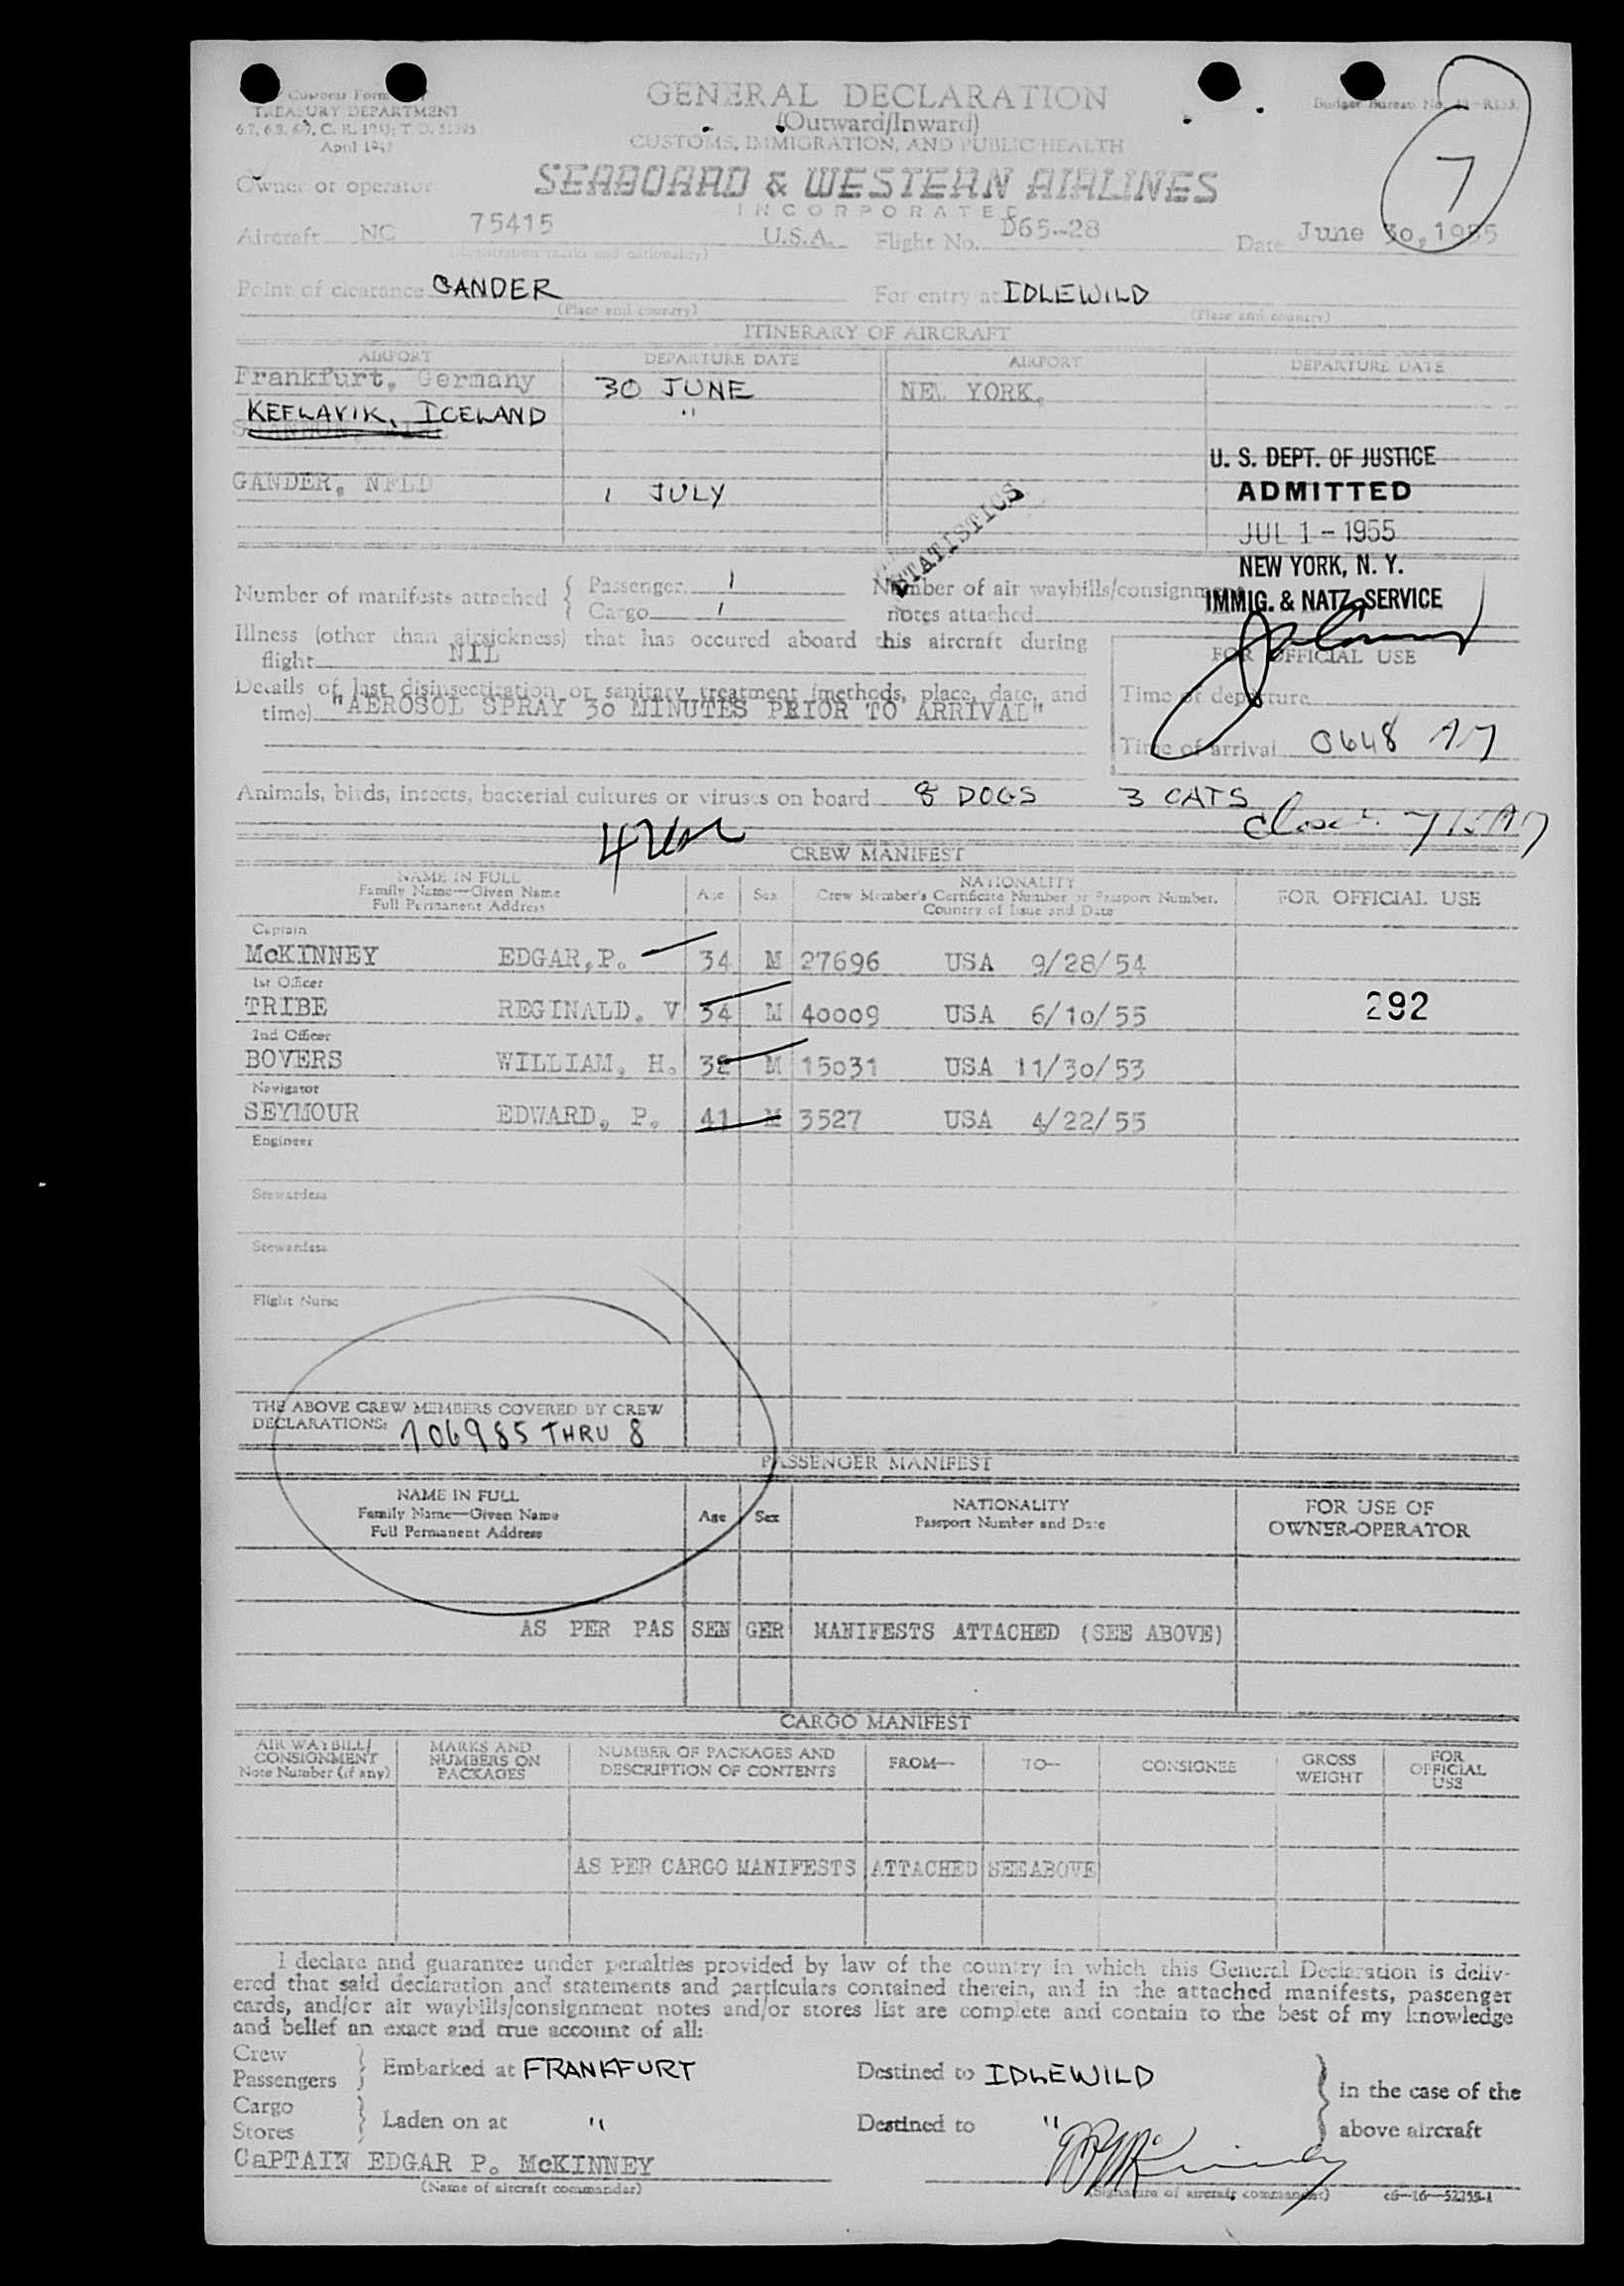 Customs Form
TREASURY DEPARTMENT
April 1947
GENERAL DECLARATION
(Outward/Inward)
CUSTOMS, IMMIGRATION, AND PUBLIC HEALTH
Budget Bureau No.
7
Owner or operator SEABOARD & WESTERN AIRLINES
INCORPORATED
Aircraft NC 75415 U.S.A. Flight No. D65-28 Date June 30, 1955
(Registration marks and nationality)
Point of clearance GANDER For entry at IDLEWILD
(Place and country) (Place and country)
ITINERARY OF AIRCRAFT
AIRPORT DEPARTURE DATE AIRPORT DEPARTURE DATE
Frankfurt, Germany 30 JUNE NEW YORK,
KEFLAVIK, ICELAND "
GANDER, NFLD 1 JULY
U. S. DEPT. OF JUSTICE
ADMITTED
JUL 1 - 1955
NEW YORK, N. Y.
IMMIG. & NATZ. SERVICE
STATISTICS
Number of manifests attached { Passenger 1
Cargo 1
Number of air waybills/consignment
notes attached
Illness (other than airsickness) that has occured aboard this aircraft during
flight NIL
FOR OFFICIAL USE
Details of last disinsectization or sanitary treatment (methods, place, date, and
time) "AEROSOL SPRAY 30 MINUTES PRIOR TO ARRIVAL"
Time of departure
Time of arrival 0648 AM
Animals, birds, insects, bacterial cultures or viruses on board 8 DOGS 3 CATS
CREW MANIFEST
NAME IN FULL
Family Name—Given Name
Full Permanent Address
Age Sex
NATIONALITY
Crew Member's Certificate Number or Passport Number.
Country of Issue and Date
FOR OFFICIAL USE
Captain
McKINNEY EDGAR,P. 34 M 27696 USA 9/28/54
1st Officer
TRIBE REGINALD, V 34 M 40009 USA 6/10/55
292
2nd Officer
BOVERS WILLIAM, H. 32 M 15031 USA 11/30/53
Navigator
SEYMOUR EDWARD, P. 41 M 3527 USA 4/22/55
Engineer
Stewardess
Stewardess
Flight Nurse
THE ABOVE CREW MEMBERS COVERED BY CREW
DECLARATIONS: 706985 THRU 8
PASSENGER MANIFEST
NAME IN FULL
Family Name—Given Name
Full Permanent Address
Age Sex
NATIONALITY
Passport Number and Date
FOR USE OF
OWNER-OPERATOR
AS PER PAS SEN GER MANIFESTS ATTACHED (SEE ABOVE)
CARGO MANIFEST
AIR WAYBILL/
CONSIGNMENT
Note Number (if any)
MARKS AND
NUMBERS ON
PACKAGES
NUMBER OF PACKAGES AND
DESCRIPTION OF CONTENTS
FROM— TO— CONSIGNEE
GROSS
WEIGHT
FOR
OFFICIAL
USE
AS PER CARGO MANIFESTS ATTACHED SEE ABOVE
I declare and guarantee under penalties provided by law of the country in which this General Declaration is deliv-
ered that said declaration and statements and particulars contained therein, and in the attached manifests, passenger
cards, and/or air waybills/consignment notes and/or stores list are complete and contain to the best of my knowledge
and belief an exact and true account of all:
Crew
Passengers } Embarked at FRANKFURT Destined to IDLEWILD } in the case of the
Cargo
Stores } Laden on at " Destined to " above aircraft
CaPTAIN EDGAR P. McKINNEY
(Name of aircraft commander) (Signature of aircraft commander) c6—16—52355-1